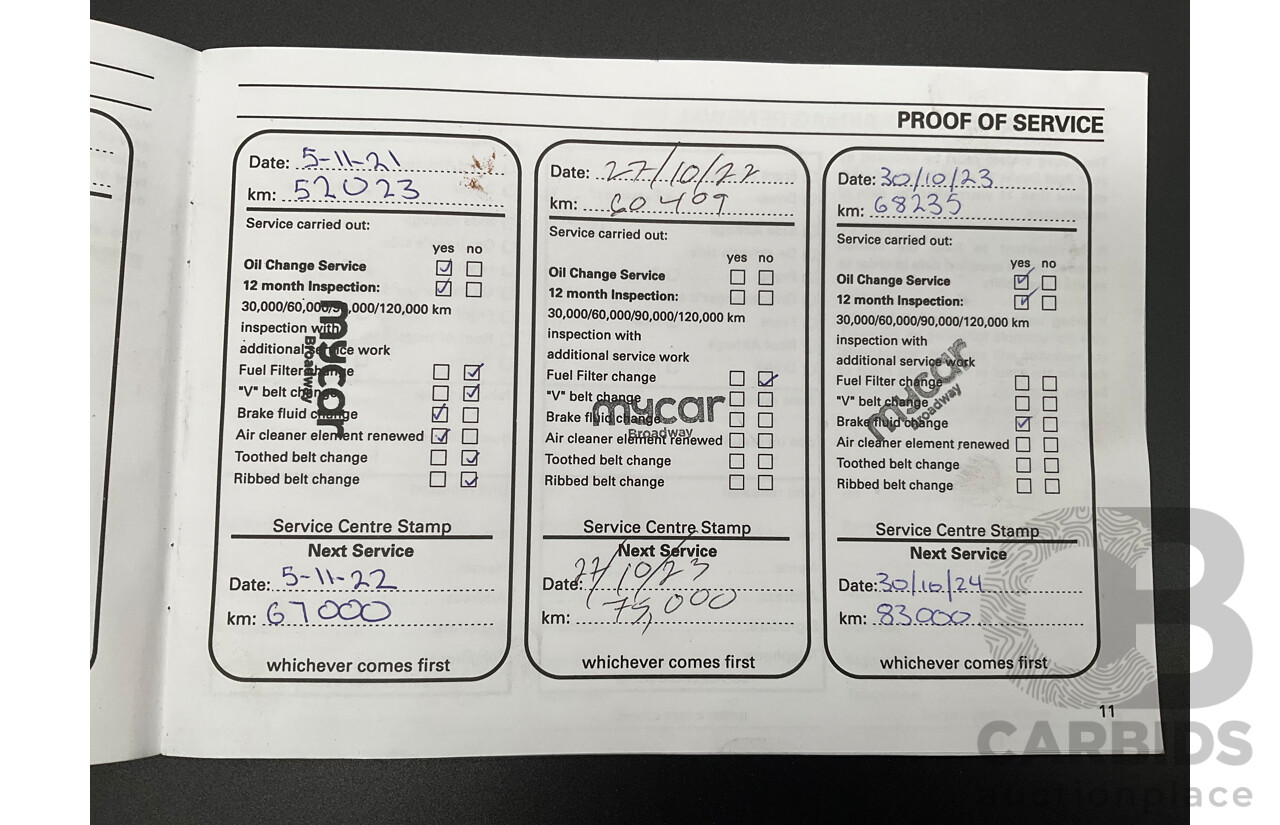 PROOF OF SERVICE
Date: 5-11-21
km: 52023
Service carried out:
yes no
Oil Change Service
12 month Inspection:
30,000/60,000/90,000/120,000 km
inspection with
additional service work
Fuel Filter change
"V" belt change
Brake fluid change
Air cleaner element renewed
Toothed belt change
Ribbed belt change
mycar
Broadway
Service Centre Stamp
Next Service
Date: 5-11-22
km: 67000
whichever comes first
Date: 27/10/22
km: 60409
Service carried out:
yes no
Oil Change Service
12 month Inspection:
30,000/60,000/90,000/120,000 km
inspection with
additional service work
Fuel Filter change
"V" belt change
Brake fluid change
Air cleaner element renewed
Toothed belt change
Ribbed belt change
mycar
Broadway
Service Centre Stamp
Next Service
Date: 27/10/23
km: 75,000
whichever comes first
Date: 30/10/23
km: 68235
Service carried out:
yes no
Oil Change Service
12 month Inspection:
30,000/60,000/90,000/120,000 km
inspection with
additional service work
Fuel Filter change
"V" belt change
Brake fluid change
Air cleaner element renewed
Toothed belt change
Ribbed belt change
mycar
Broadway
Service Centre Stamp
Next Service
Date: 30/10/24
km: 83000
whichever comes first
11
CB
CARBIDS
auctionplace